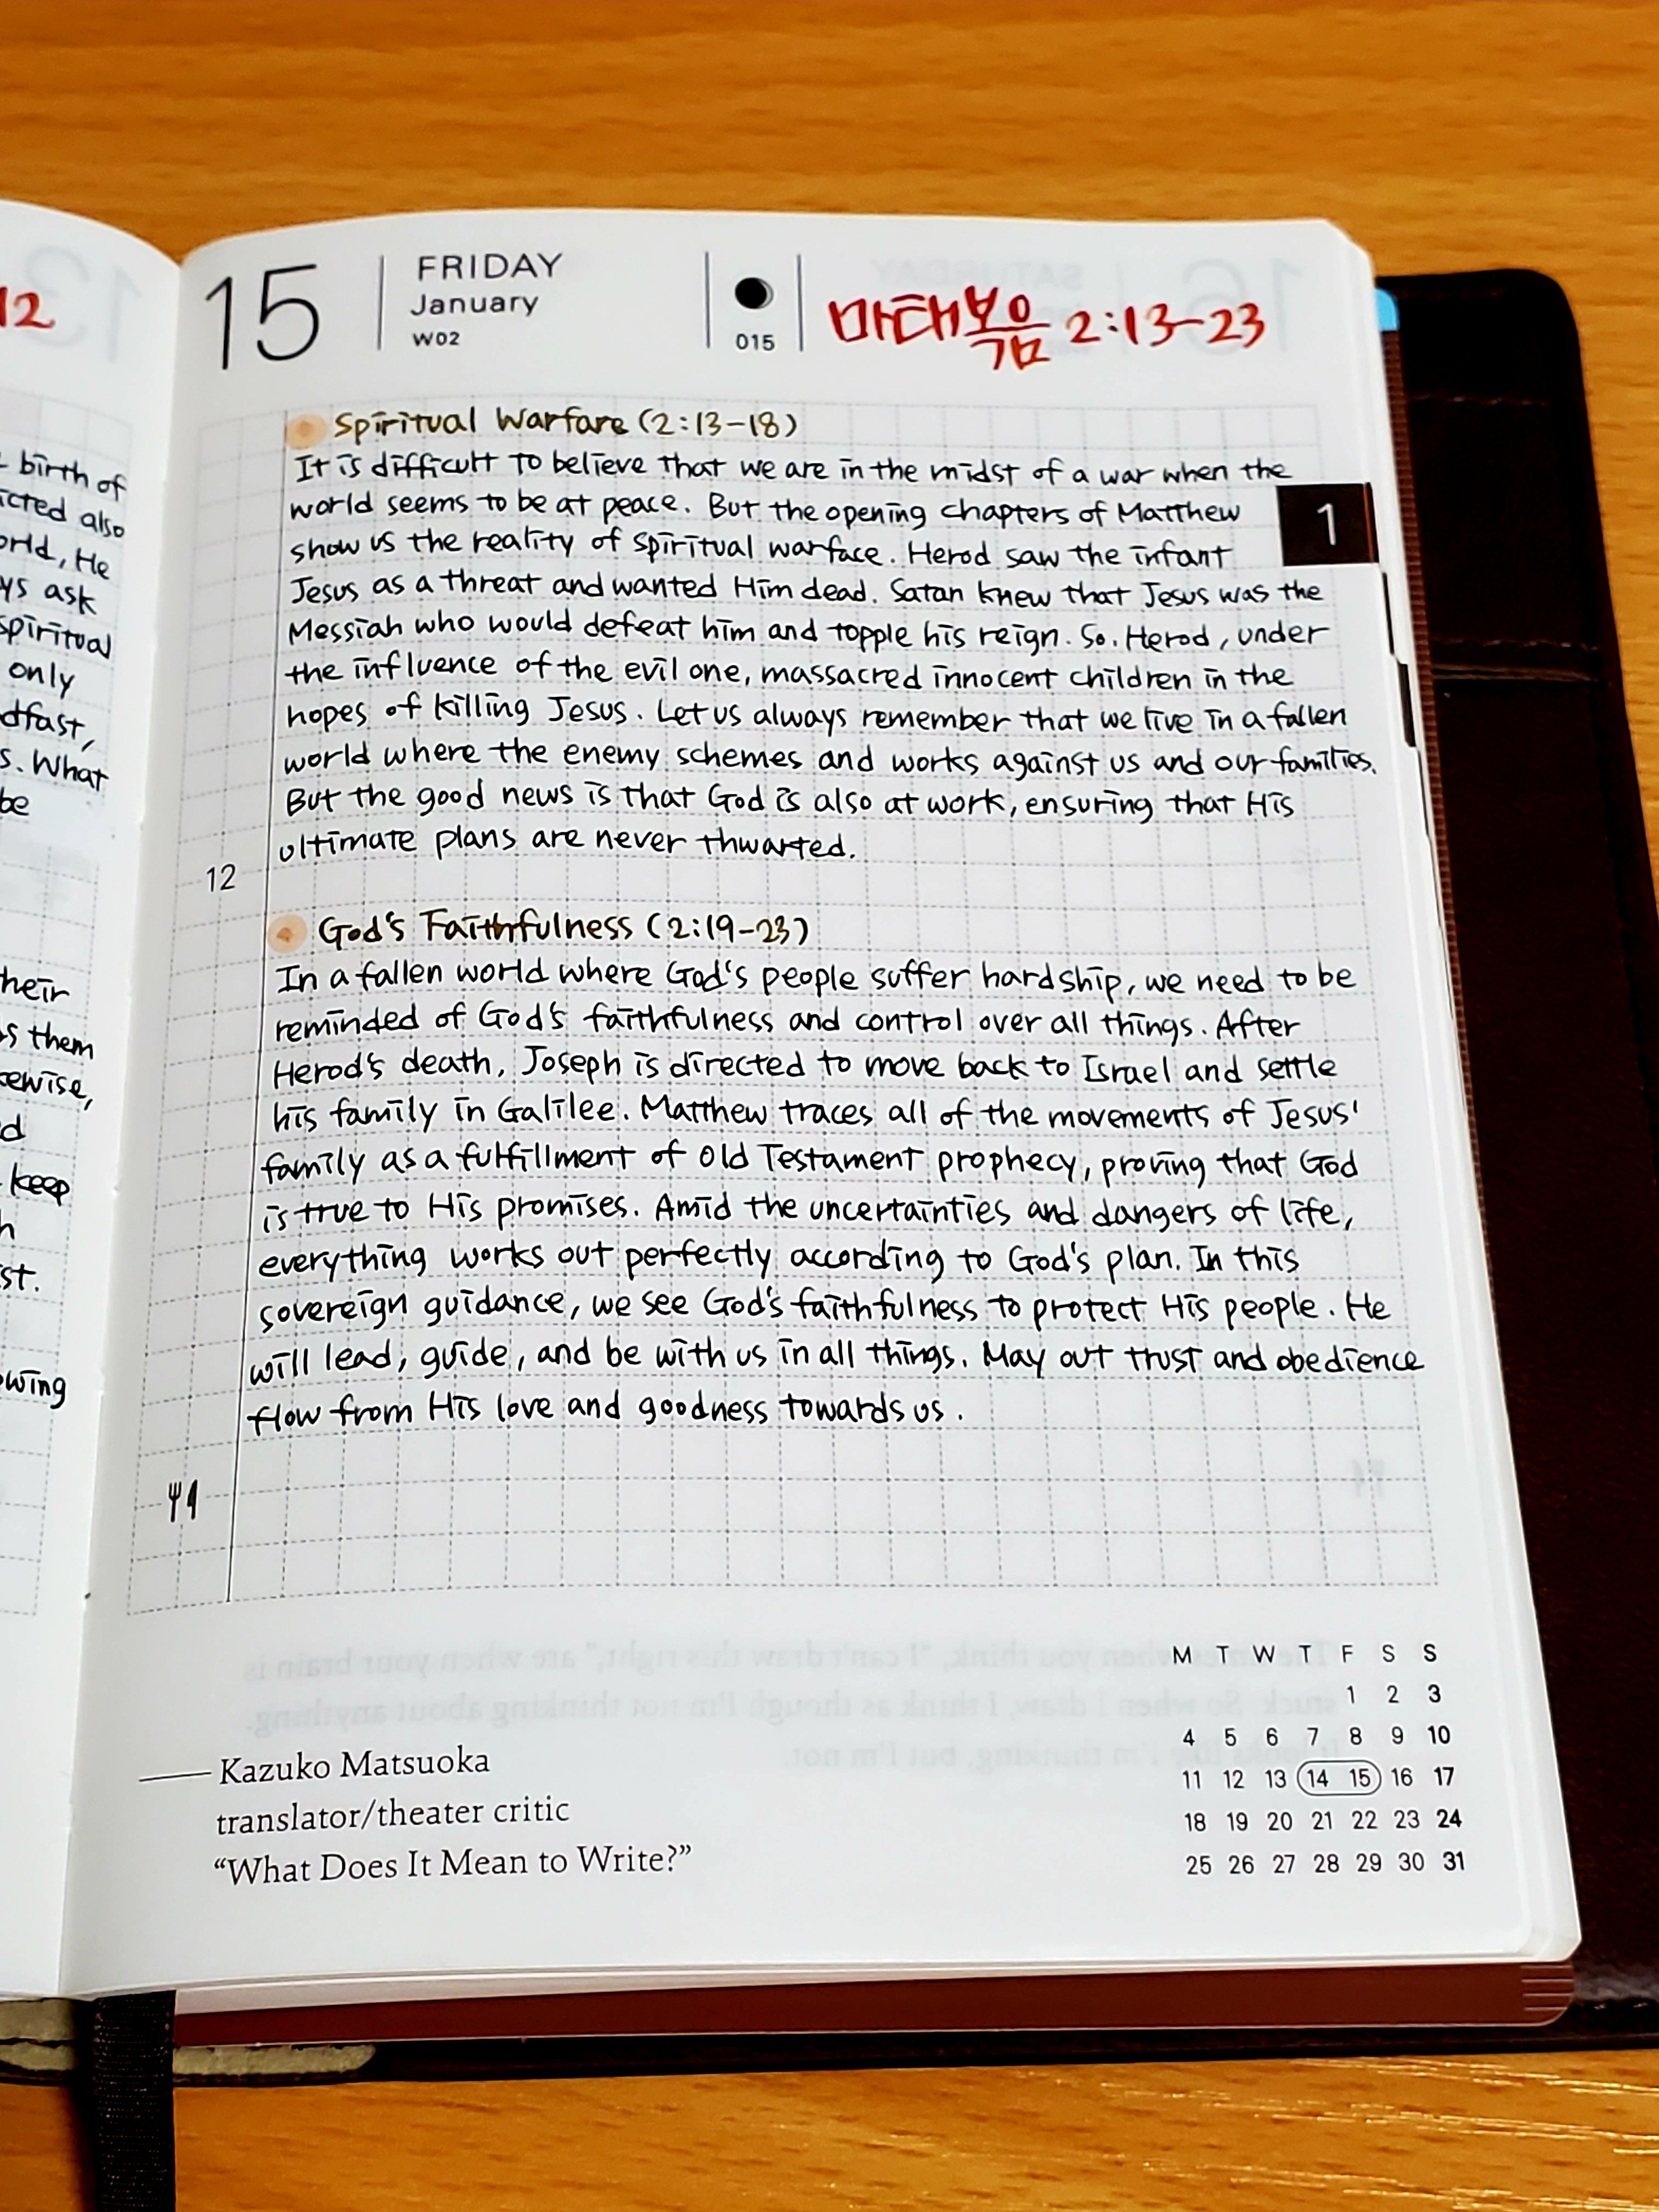 12
birth of
also
He
ask
spiritual
only
What
be
them
keep
15
FRIDAY
January
W02
015
마태복음 2:13-23
Spiritual Warfare (2:13-18)
It is difficult to believe that we are in the midst of a war when the
world seems to be at peace. But the opening chapters of Matthew
show us the reality of spiritual warface. Herod saw the infant
1
Jesus as a threat and wanted Him dead. Satan knew that Jesus was the
Messiah who would defeat him and topple his reign. So. Herod, under
the influence of the evil one, massacred innocent children in the
hopes of killing Jesus. Let us always remember that we live in a fallen
world where the enemy schemes and works against us and our families.
But the good news is that God is also at work, ensuring that His
ultimate plans are never thwarted.
12
God's Faithfulness (2:19-23)
In a fallen world where God's people suffer hardship, we need to be
reminded of God's faithfulness and control over all things. After
Herod's death, Joseph is directed to move back to Israel and settle
his family in Galilee. Matthew traces all of the movements of Jesus'
family as a fulfillment of Old Testament prophecy, proving that God
is true to His promises. Amid the uncertainties and dangers of life,
everything works out perfectly according to God's plan. In this
sovereign guidance, we see God's faithfulness to protect His people. He
will lead, guide, and be with us in all things. May out trust and obedience
flow from His love and goodness towards us.
Kazuko Matsuoka
translator/theater critic
“What Does It Mean to Write?”
M T W T F S S
1 2 3
4 5 6 7 8 9 10
11 12 13 14 15 16 17
18 19 20 21 22 23 24
25 26 27 28 29 30 31